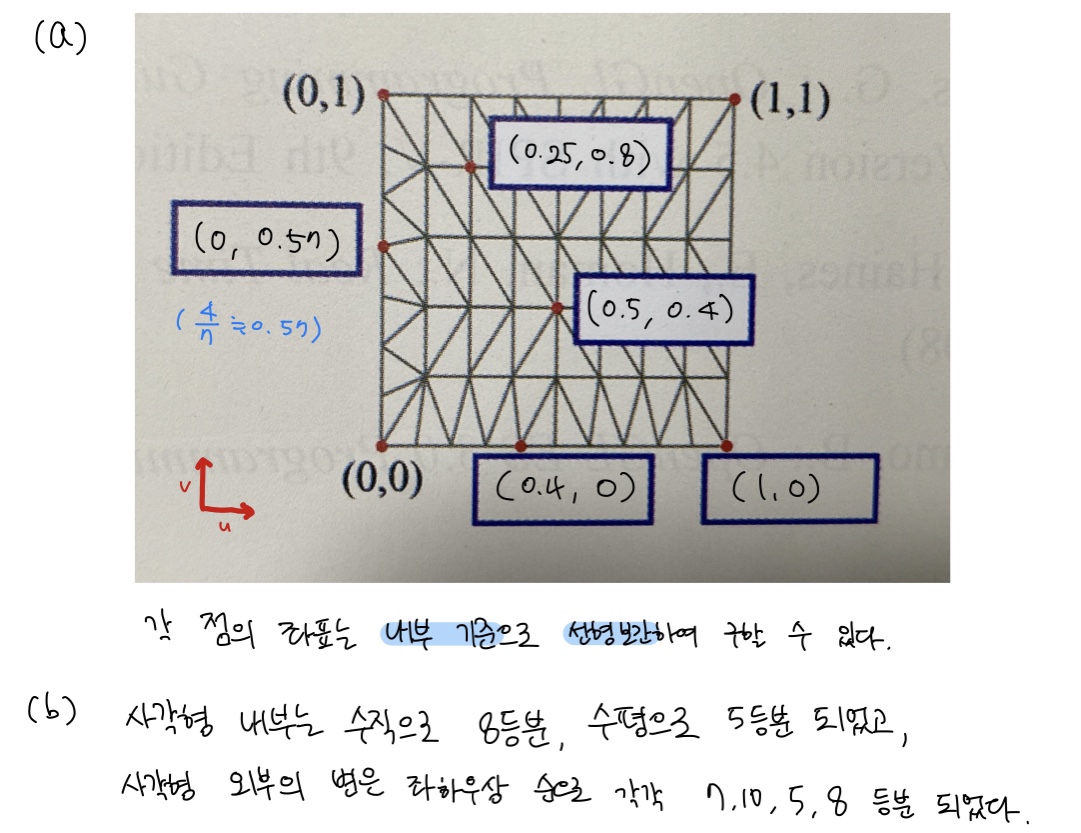 (a)
(0,1)
(1,1)
(0.25, 0.8)
(0, 0.57)
(4/7 ≒ 0.57)
(0.5, 0.4)
(0,0)
(0.4, 0)
(1, 0)
v
u
각 점의 좌표는 내부 기준으로 선형보간하여 구할 수 있다.
(b) 사각형 내부는 수직으로 8등분, 수평으로 5등분 되었고,
사각형 외부의 변은 좌하우상 순으로 각각 7, 10, 5, 8 등분 되었다.